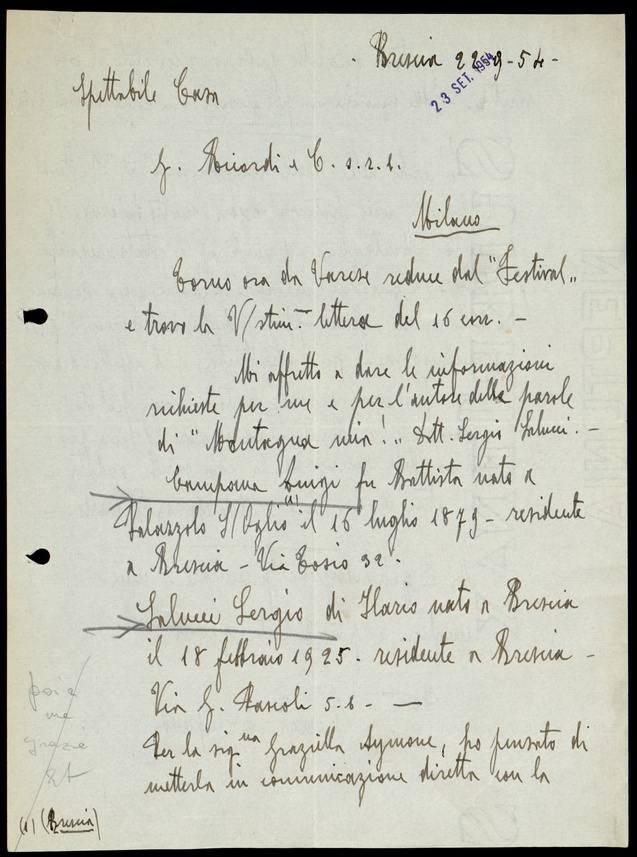 Brescia 22-9-54-
23 SET. 1954
Spettabile Casa
G. Ricordi e C. s.r.l.
Milano
Torno ora da Varese reduce dal "Festival"
e trovo la V/stim. lettera del 16 corr. -
Mi affretto a dare le informazioni
richieste per me e per l'autore della parole
di "Montagna mia!" Dott. Sergio Salucci. -
Campana Luigi fu Battista nato a
Palazzolo S/Oglio (1) il 16 luglio 1879 - residente
a Brescia - Via Tosio 32 -
Salucci Sergio di Ilario nato a Brescia
il 18 febbraio 1925. residente a Brescia -
Via G. Pascoli 5. -
Per la sig.na Graziella Aymone, ho pensato di
metterla in comunicazione diretta con la
poi a
me
grazie
(1) (Brescia)